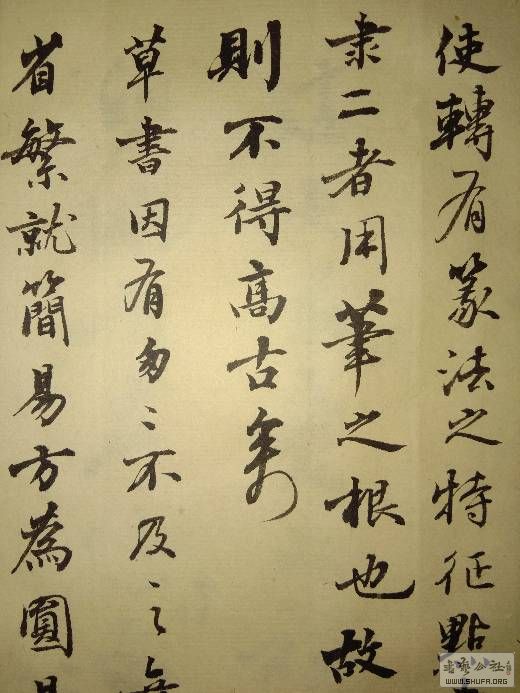 使轉有篆法之特征點
隶二者用筆之根也故
則不得高古矣
草書因有匆〻不及〻之
省繁就簡易方為圓
书艺公社
WWW.SHUFA.ORG